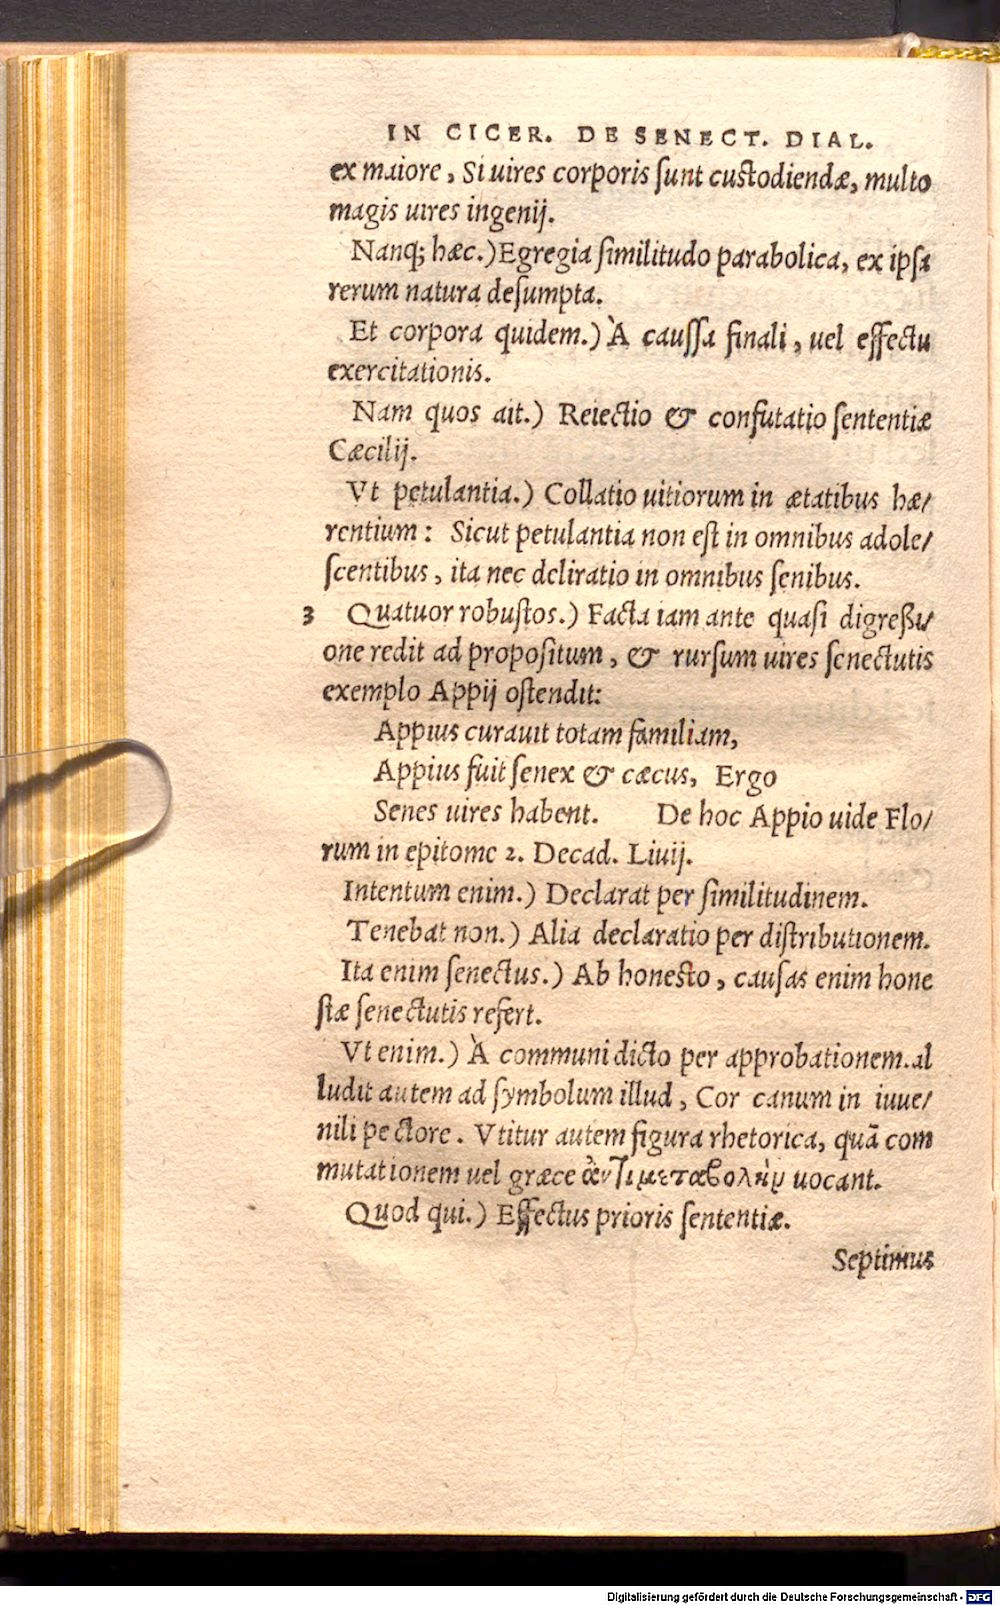 IN CICER. DE SENECT. DIAL.
ex maiore, Si uires corporis ſunt cuſtodiendæ, multo
magis uires ingenij.
Nanq; hæc.) Egregia ſimilitudo parabolica, ex ipſa
rerum natura deſumpta.
Et corpora quidem.) À cauſſa finali, uel effectu
exercitationis.
Nam quos ait.) Reiectio & confutatio ſententiæ
Cæcilij.
Vt petulantia.) Collatio uitiorum in ætatibus hæ/
rentium: Sicut petulantia non eſt in omnibus adole/
ſcentibus, ita nec deliratio in omnibus ſenibus.
3 Quatuor robuſtos.) Facta iam ante quaſi digreßi/
one redit ad propoſitum, & rurſum uires ſenectutis
exemplo Appij oſtendit:
Appius curauit totam familiam,
Appius fuit ſenex & cæcus, Ergo
Senes uires habent. De hoc Appio uide Flo/
rum in epitome 2. Decad. Liuij.
Intentum enim.) Declarat per ſimilitudinem.
Tenebat non.) Alia declaratio per diſtributionem.
Ita enim ſenectus.) Ab honesto, cauſas enim hone
ſtæ ſenectutis refert.
Vt enim.) À communi dicto per approbationem. al
ludit autem ad ſymbolum illud, Cor canum in iuue/
nili pectore. Vtitur autem figura rhetorica, quã com
mutationem uel græce ἀντιμεταβολὴν uocant.
Quod qui.) Effectus prioris ſententiæ.
Septimus
Digitalisierung gefördert durch die Deutsche Forschungsgemeinschaft - DFG